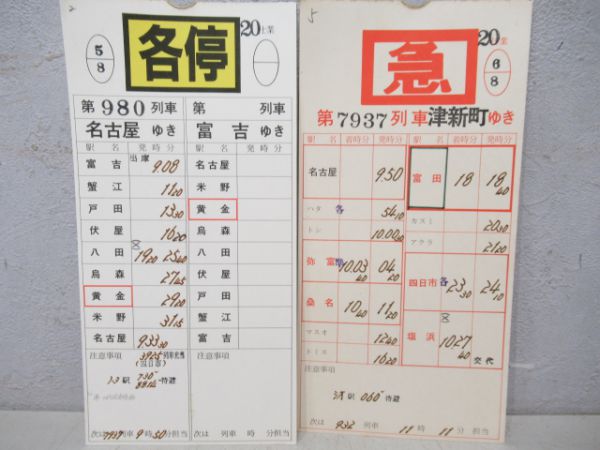 2
5
8
各停
20 土業
第 980 列車
名古屋 ゆき
駅 名 発時分
富 吉 出庫 9.08
蟹 江 11 20
戸 田 13 30
伏 屋 16 20
八 田 19 20 25 40
烏 森 27 45
黄 金 29 20
米 野 31 15
名古屋 9 33 30
注意事項
(四日市)
待避
次は 7937 列車 9 時 50 分担当
第 列車
富 吉 ゆき
駅 名 発時分
名古屋
米 野
黄 金
烏 森
八 田
伏 屋
戸 田
蟹 江
富 吉
注意事項
次は 列車 時 分担当
5
急
20
6
8
第 7937 列車 津新町 ゆき
駅 名 着時分 発時分
名古屋 9.50
ハタ 54 10
トシ 10.00 40
弥 富 10.03 40 04 20
桑 名 10 40 11 20
マスオ 12 40
トミス 16 20
駅 名 着時分 発時分
富 田 18 18 40
カスミ 20 30
アクラ 21 20
四日市 23 30 24 10
塩 浜 10 27 40 交代
注意事項
駅 060 待避
次は 932 列車 11 時 11 分担当